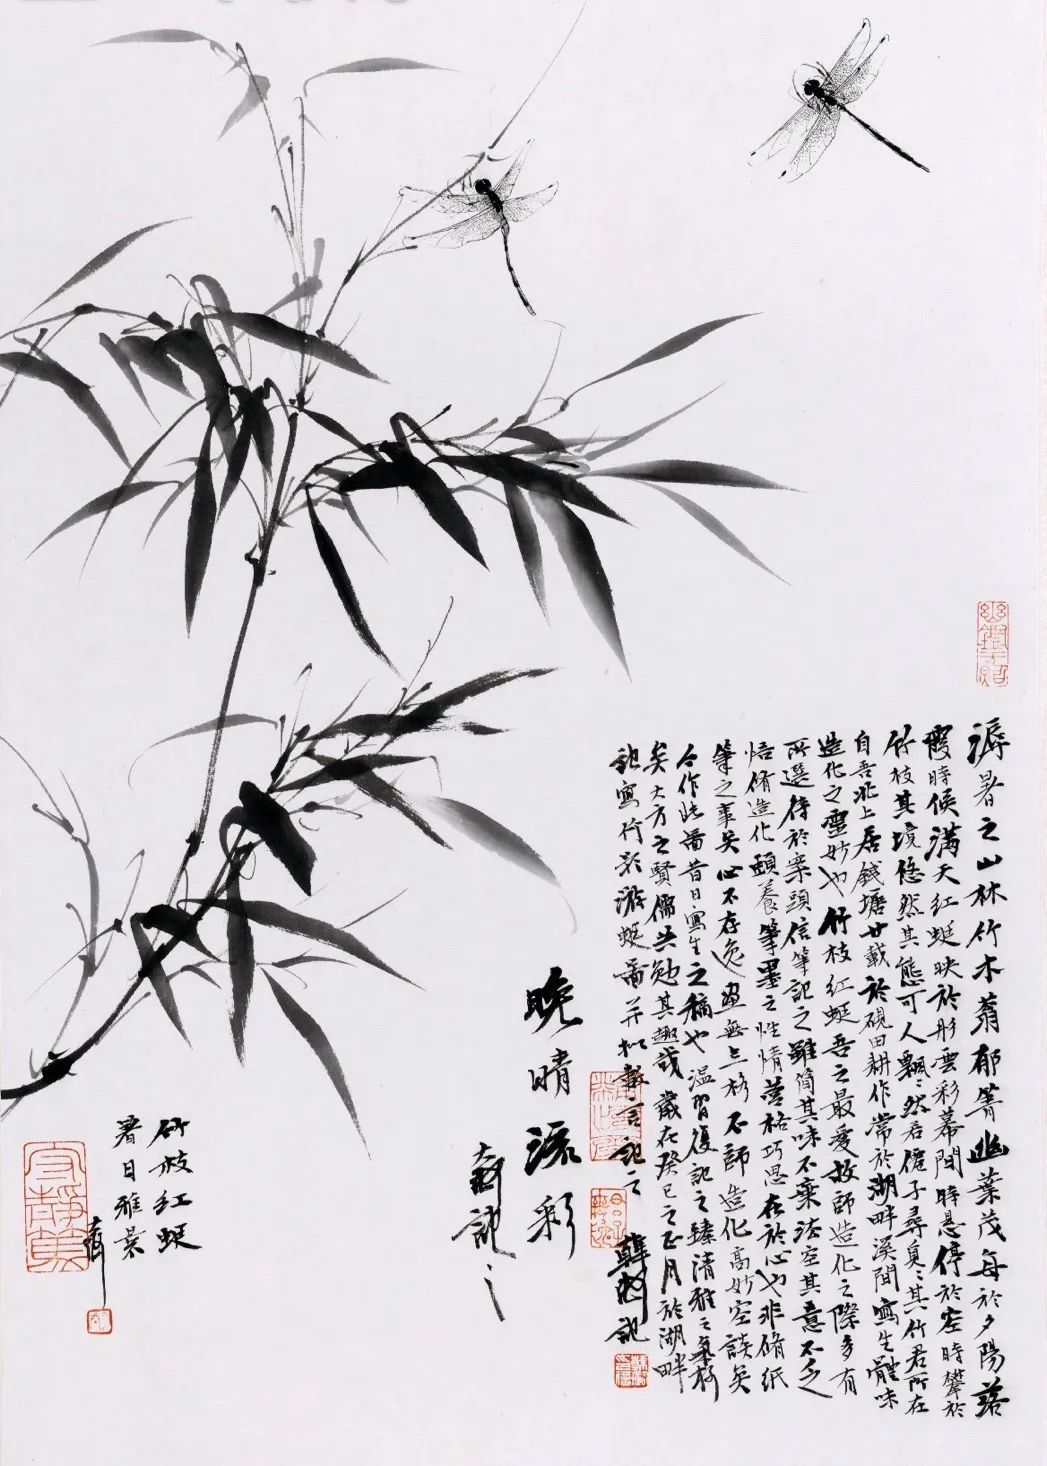 溽暑之山林竹木蓊郁箐幽葉茂每於夕陽落
霞時候滿天紅蜓映於彤雲彩幕間時悬停於空時攀於
竹枝其境悠然其態可人飄飄然若僊子尋臾臾其竹君所在
自吾北上居錢塘廿載於硯田耕作常於湖畔溪間寫生體味
造化之靈妙也竹枝紅蜓吾之最愛故師造化之際多有
所選待於案頭信筆記之雖簡其味不棄法空其意不乏
悟脩造化頤養筆墨之性情菩格巧思在於心也非脩紙
筆之事矣心不存逸畫無上杉不師造化高妙空談矣
今作此啚昔日寫生之稿也温習復記之臻清雅之氣杉
矣大方之賢儒共勉其趣哉歲在癸巳之正月於湖畔
寫竹影游蜓啚并拟數言記之
晚晴流彩
記之
竹枝紅蜓
暑日雅景